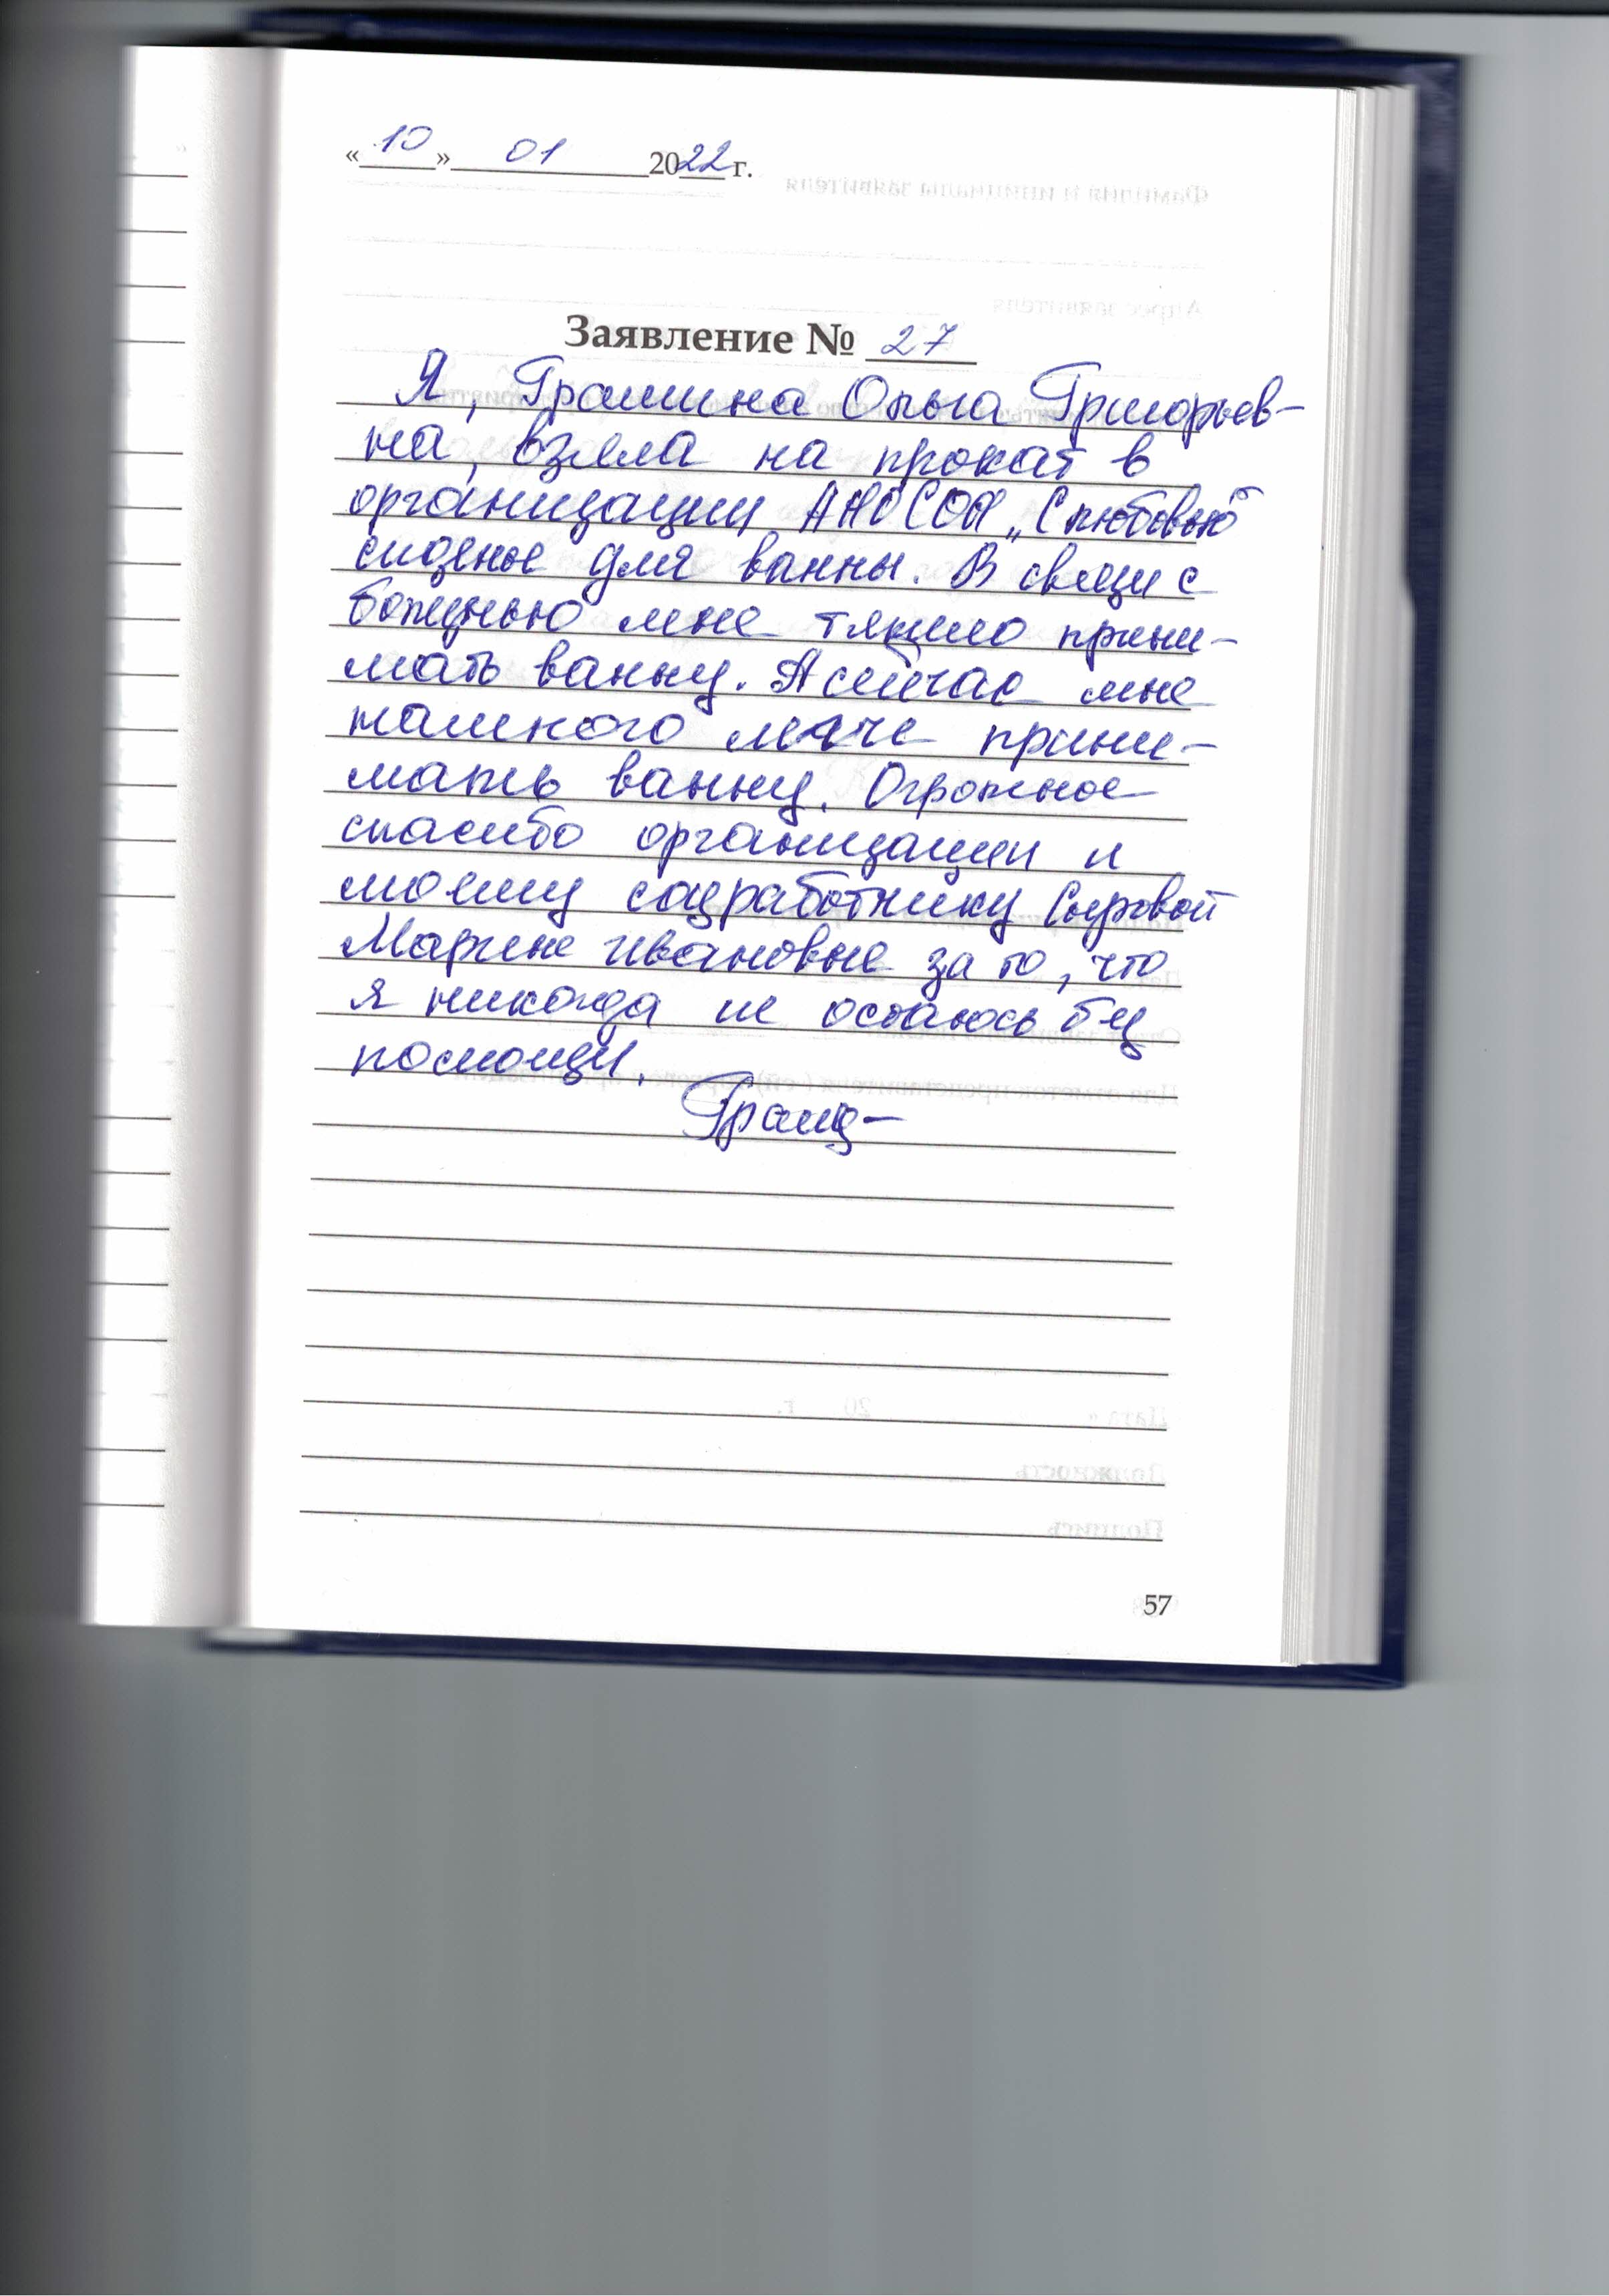 «10» 01 2022 г.
Заявление № 27
Я, Грамина Ольга Григорьев-
на, взяла на прокат в
организации АНОСОН „С любовью"
сиденье для ванны. В связи с
болезнью мне тяжело прини-
мать ванну. А сейчас мне
намного легче прини-
мать ванну. Огромное
спасибо организации и
моему соцработнику Сыровой
Марине Ивановне за то, что
я никогда не остаюсь без
помощи.
57